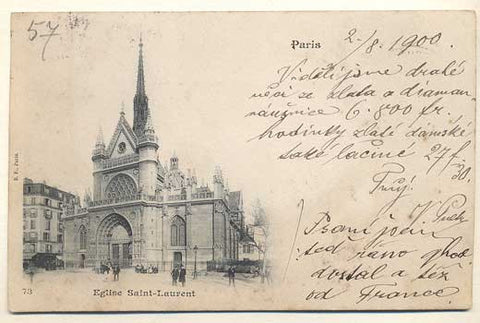 57
Paris 2/8. 1900.
Viděli jsme drahé
věci ze zlata a diaman.
náušnice 6.800 fr.
hodinky zlaté dámské
také laciné 27 f.
50.
Psaní jsem
teď ráno
dostal a též
od France.
B. F. Paris
73
Eglise Saint-Laurent